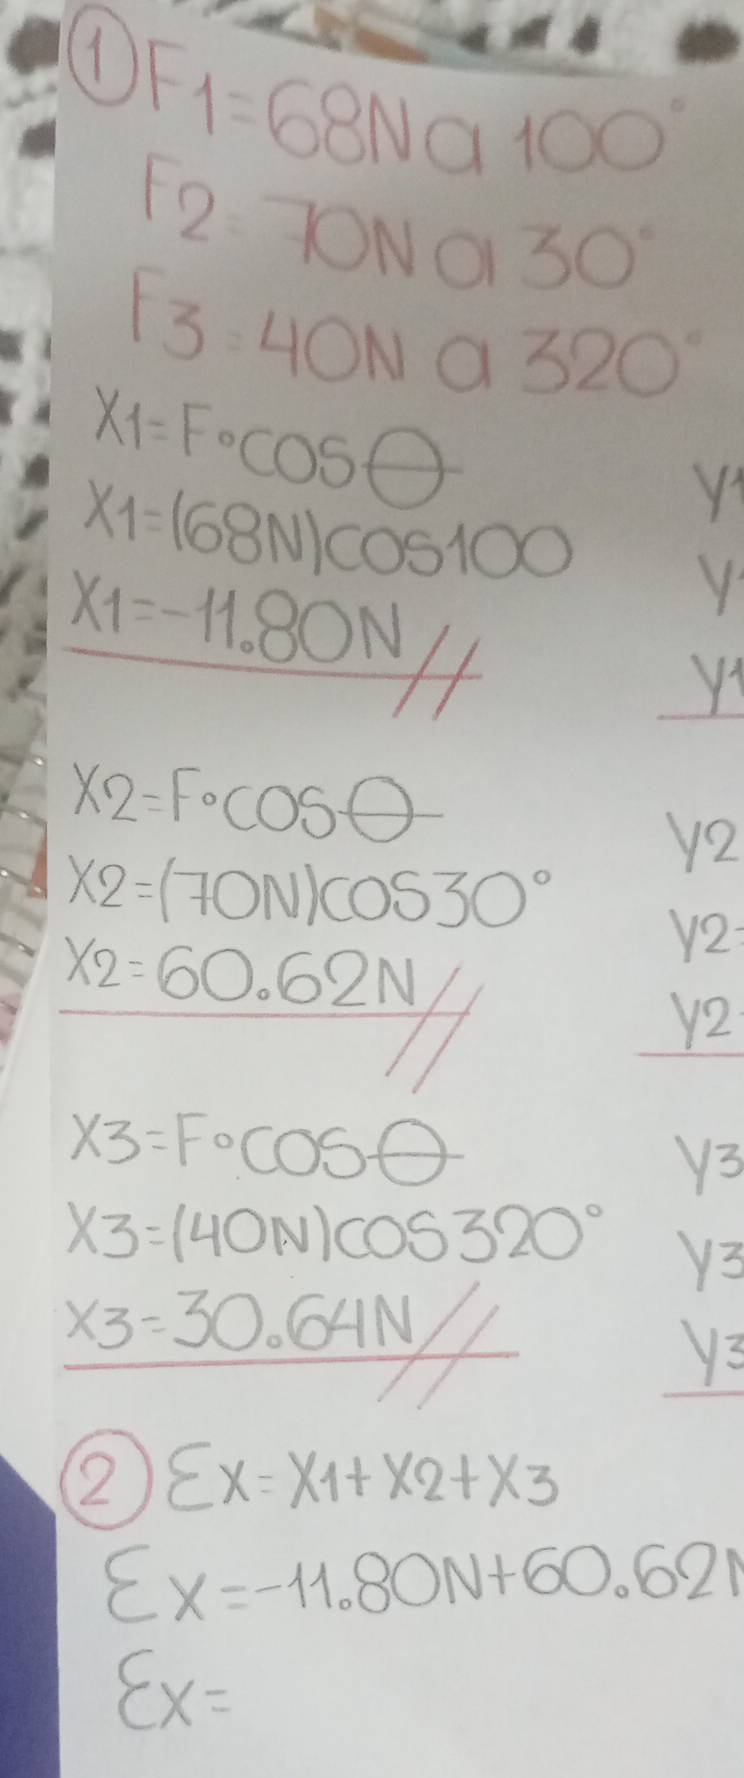 ① F1=68N a 100°
F2=70N a 30°
F3=40N a 320°
X1=F•COSθ
X1=(68N)COS100
X1=-11.80N
X2=F•COSθ
X2=(70N)COS30°
X2=60.62N
X3=F•COSθ
X3=(40N)COS320°
X3=30.64N
y1
y
y1
y2
y2=
y2
y3
y3
y3
② Σx=X1+X2+X3
Σx=-11.80N+60.62N
Σx=